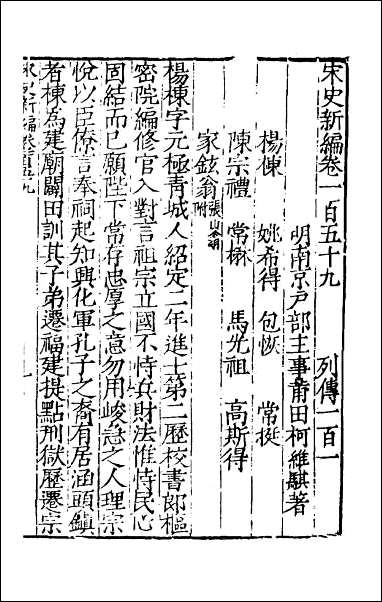 宋史新編卷一百五十九 列傳一百一
明南京戶部主事莆田柯維騏著
楊棟 姚希得 包恢 常挺
陳宗禮 常楙 馬光祖 高斯得
家鉉翁 附
楊棟字元極青城人紹定二年進士第二歷校書郎樞
密院編修官入對言祖宗立國不恃兵財法惟恃民心
固結而已願陛下常存忠厚之意勿用峻急之人理宗
悅以臣僚言奉祠起知興化軍孔子之裔有居涵頭鎮
者棟為建廟闢田訓其子弟遷福建提點刑獄歷遷宗